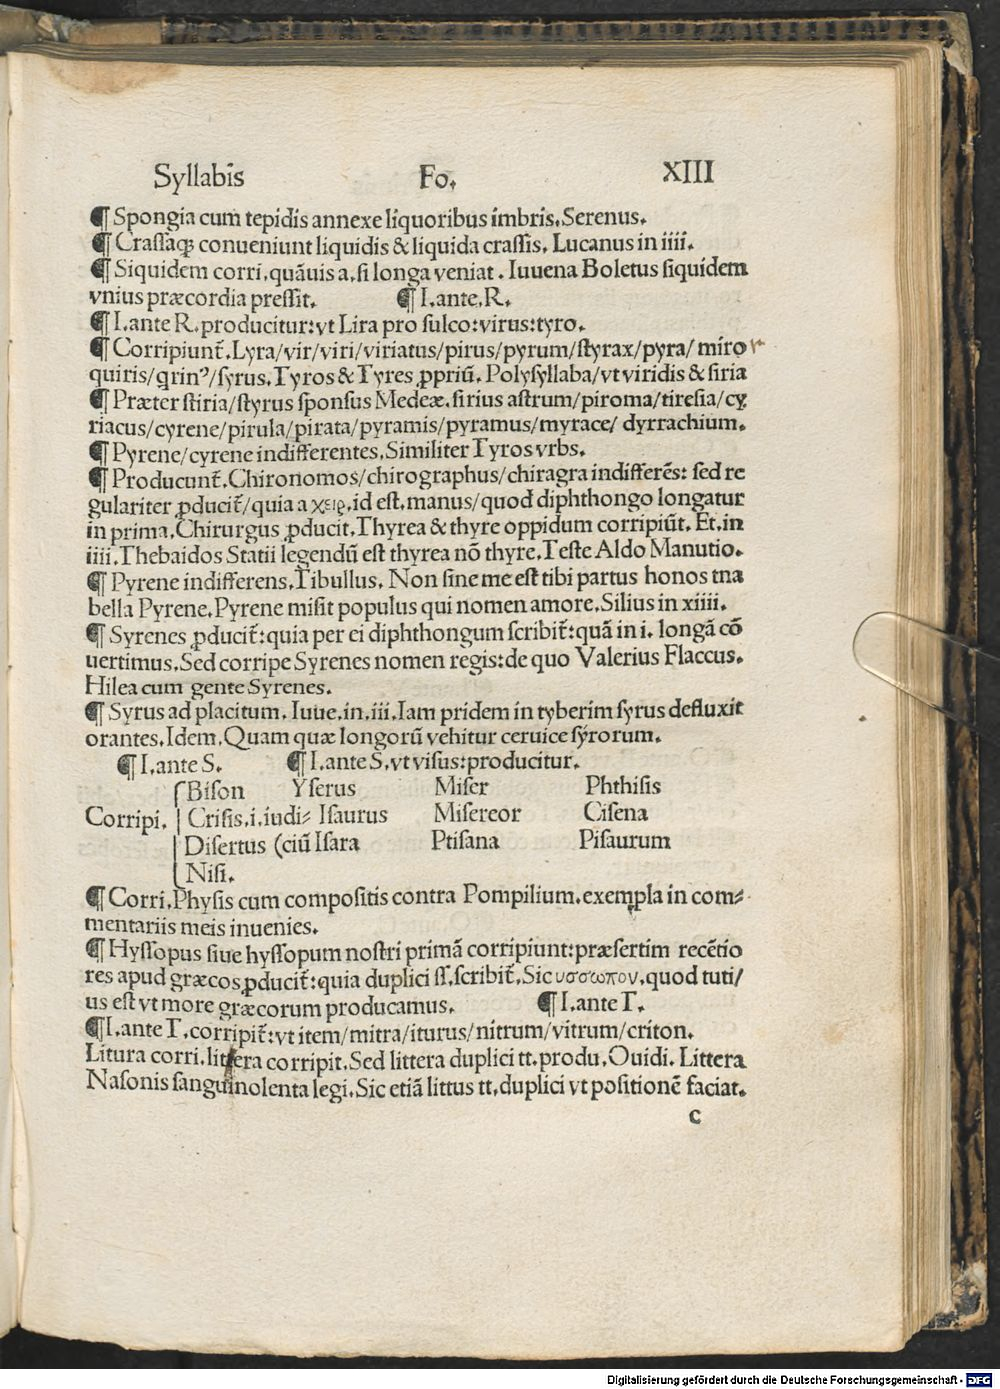 Syllabis Fo. XIII
¶ Spongia cum tepidis annexe liquoribus imbris. Serenus.
¶ Crassaqȝ conueniunt liquidis & liquida crassis. Lucanus in iiii.
¶ Siquidem corri. quāuis a. si longa veniat. Iuuena Boletus siquidem
vnius præcordia pressit. ¶ I. ante. R.
¶ I. ante R. producitur: vt Lira pro sulco: virus: tyro.
¶ Corripiunt̄. Lyra/vir/viri/viriatus/pirus/pyrum/styrax/pyra/ miro
quiris/qrinꝰ/syrus. Tyros & Tyres ꝓpriū. Polysyllaba/vt viridis & siria
¶ Præter stiria/styrus sponsus Medeæ. sirius astrum/piroma/tiresia/cy
riacus/cyrene/pirula/pirata/pyramis/pyramus/myrace/ dyrrachium.
¶ Pyrene/cyrene indifferentes. Similiter Tyros vrbs.
¶ Producunt̄. Chironomos/chirographus/chiragra indifferēs: sed re
gulariter ꝓducit̄/quia a χειρ, id est, manus/quod diphthongo longatur
in prima. Chirurgus ꝓducit. Thyrea & thyre oppidum corripiūt. Et. in
iiii. Thebaidos Statii legendū est thyrea nō thyre. Teste Aldo Manutio.
¶ Pyrene indifferens. Tibullus. Non sine me est tibi partus honos tna
bella Pyrene. Pyrene misit populus qui nomen amore. Silius in xiiii.
¶ Syrenes ꝓducit̄: quia per ei diphthongum scribit̄: quā in i. longā cō
uertimus. Sed corripe Syrenes nomen regis: de quo Valerius Flaccus.
Hilea cum gente Syrenes.
¶ Syrus ad placitum. Iuue. in. iii. Iam pridem in tyberim syrus defluxit
orantes. Idem. Quam quæ longorū vehitur ceruice syrorum.
¶ I. ante S. ¶ I. ante S. vt visus: producitur.
Bison Yserus Miser Phthisis
Corripi. Crisis. i. iudi⸗ Isaurus Misereor Cisena
Disertus (ciū Isara Ptisana Pisaurum
Nisi.
¶ Corri. Physis cum compositis contra Pompilium. exempla in com⸗
mentariis meis inuenies.
¶ Hyssopus siue hyssopum nostri primā corripiunt: præsertim recētio
res apud græcos ꝓducit̄: quia duplici ss. scribit̄. Sic υσσωπον. quod tuti/
us est vt more græcorum producamus. ¶ I. ante T.
¶ I. ante T. corripit̄: vt item/mitra/iturus/nitrum/vitrum/criton.
Litura corri. littera corripit. Sed littera duplici tt. produ. Ouidi. Littera
Nasonis sanguinolenta legi. Sic etiā littus tt. duplici vt positionē faciat.
c
Digitalisierung gefördert durch die Deutsche Forschungsgemeinschaft - DFG